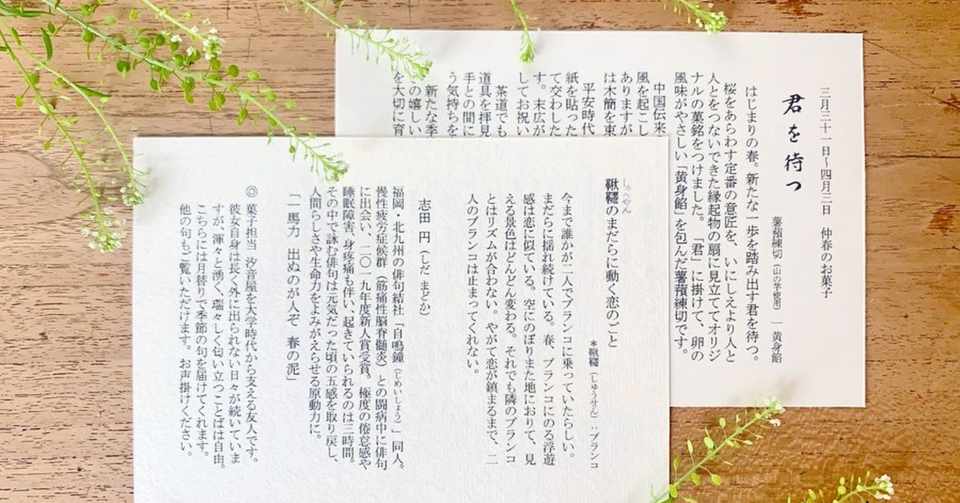 三月三十一日～四月三日　仲春のお菓子
君を待つ
薯蕷練切（山の芋使用）―黄身餡
はじまりの春。新たな一歩を踏み出す君を待つ。
桜をあらわす定番の意匠を、いにしえより人と
人とをつないできた縁起物の扇に見立ててオリジ
ナルの菓銘をつけました。「君」に掛けて、卵の
風味がやさしい「黄身餡」を包んだ薯蕷練切です。
中国伝来
風を起こし
ありますが
は木簡を束
平安時代
紙を貼った
て交わした
す。末広が
してお祝い
茶道でも
道具を拝見
手との間に
う気持ちを
新たな季
の嬉しい
を大切に育
鞦韆のまだらに動く恋のごと
＊鞦韆（しゅうせん）：ブランコ
今まで誰かが二人でブランコに乗っていたらしい。
まだらに揺れ続けている。春、ブランコにのる浮遊
感は恋に似ている。空にのぼりまた地におりて、見
える景色はどんどん変わる。それでも隣のブランコ
とはリズムが合わない。やがて恋が鎮まるまで、二
人のブランコは止まってくれない。
志田　円（しだ　まどか）
福岡・北九州の俳句結社「自鳴鐘（じめいしょう）」同人。
慢性疲労症候群（筋痛性脳脊髄炎）との闘病中に俳句
に出会い、二〇一九年度新人賞受賞。極度の倦怠感や
睡眠障害、身疼痛も伴い、起きていられるのは三時間。
その中で詠む俳句は元気だった頃の五感を取り戻し、
人間らしさや生命力をよみがえらせる原動力に。
「一馬力　出ぬのが人ぞ　春の泥」
◎菓子担当　汐音屋を大学時代から支える友人です。
彼女自身は長く外に出られない日々が続いていま
すが、渾々と湧く、瑞々しく匂い立つことばは自由。
こちらには月替りで季節の句を届けてくれます。
他の句もご覧いただけます。お声掛けください。